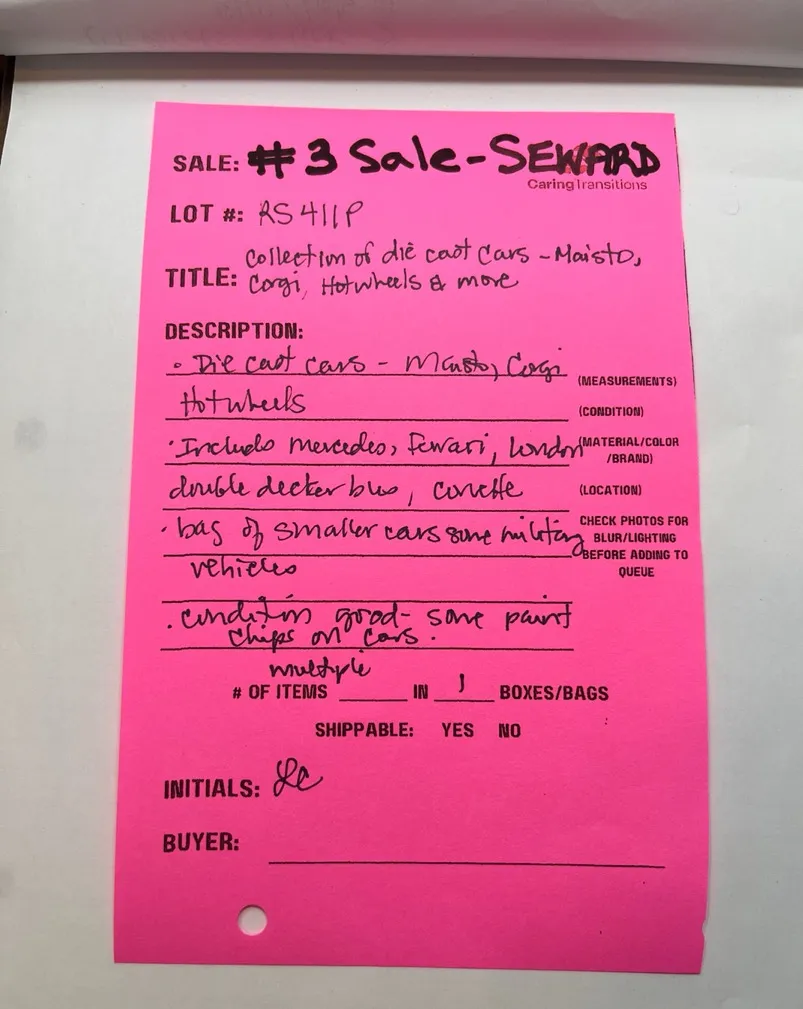 SALE: #3 Sale-SEWARD
CaringTransitions
LOT #: RS411P
Collection of die cast Cars - Maisto,
TITLE: Corgi, Hotwheels & more
DESCRIPTION:
• Die cast cars - Maisto, Corgi
(MEASUREMENTS)
Hotwheels
(CONDITION)
• Includes mercedes, Ferrari, London
(MATERIAL/COLOR
/BRAND)
double decker bus, corvette
(LOCATION)
• bag of smaller cars some military
vehicles
CHECK PHOTOS FOR
BLUR/LIGHTING
BEFORE ADDING TO
QUEUE
• condition good- some paint
chips on cars.
multiple
# OF ITEMS ____ IN 1 BOXES/BAGS
SHIPPABLE: YES NO
INITIALS: LC
BUYER: